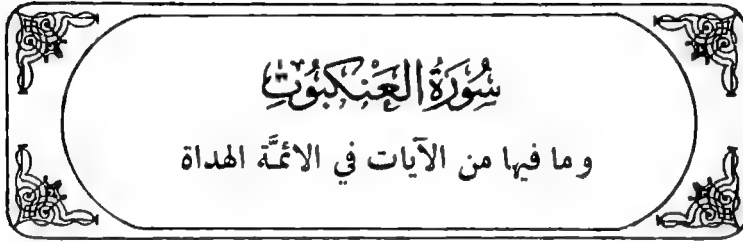 سُورَةُ العَنْكَبُوتِ
و ما فيها من الآيات في الائمَّة الهداة